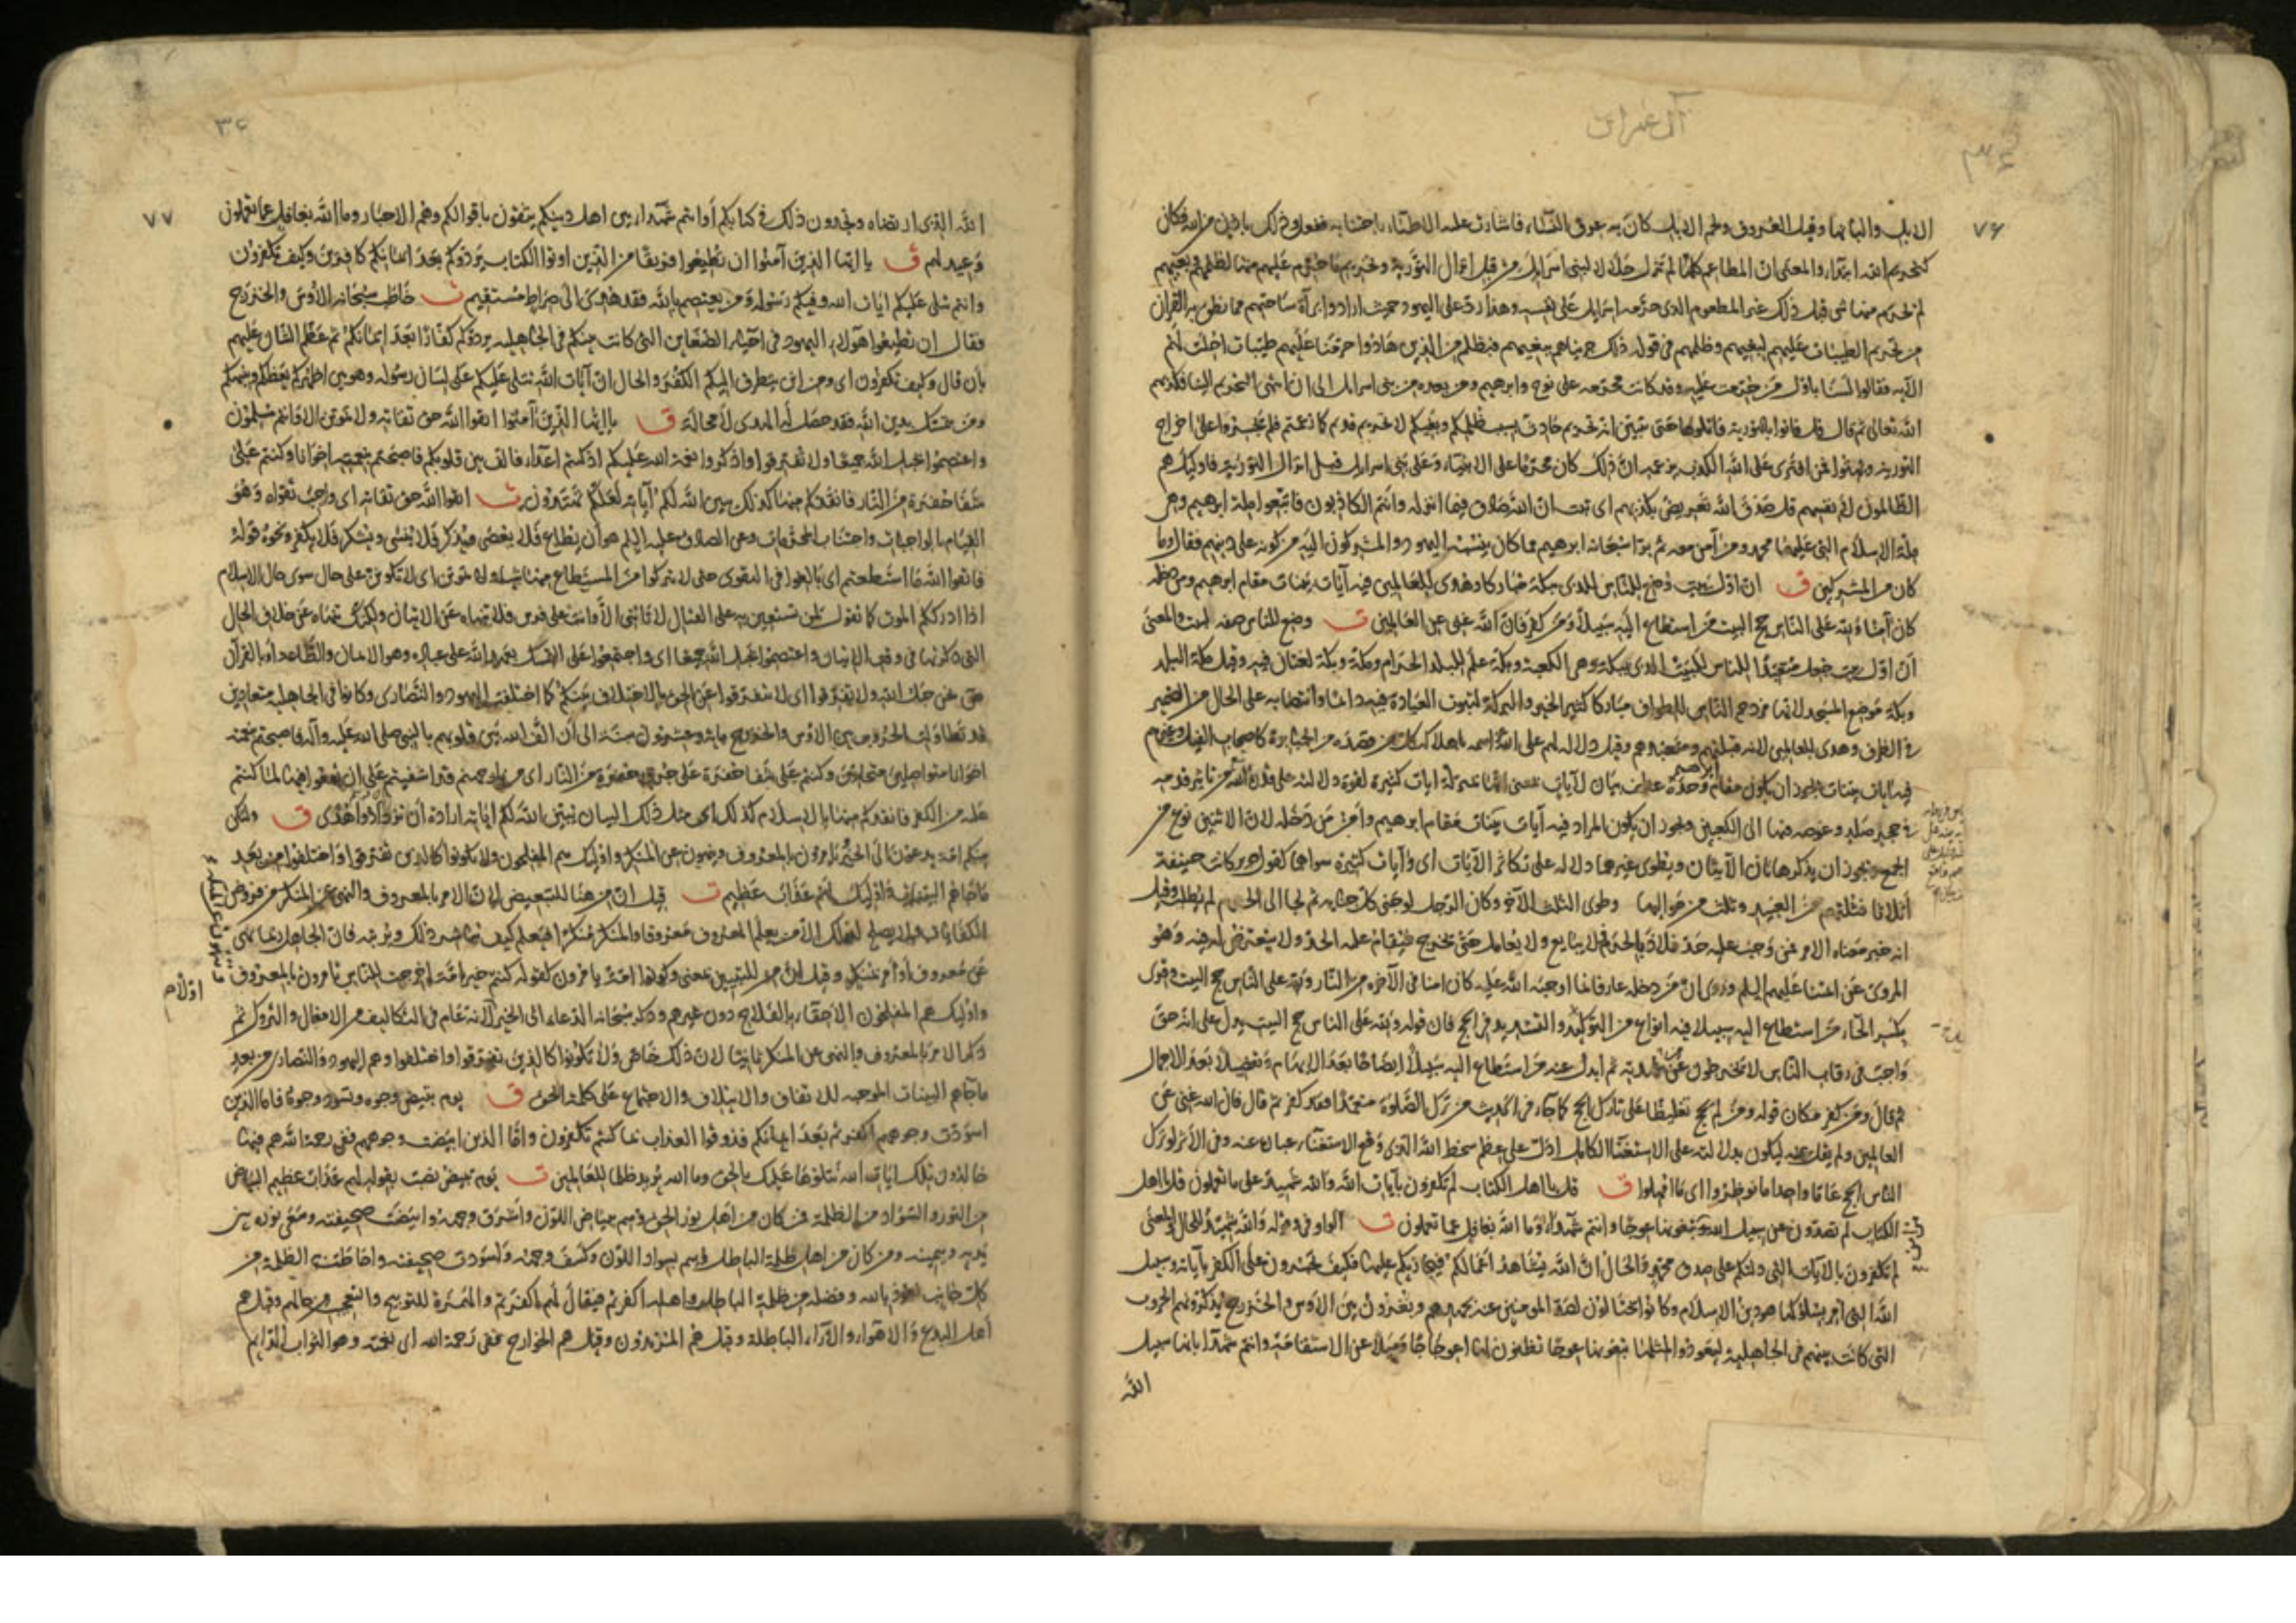 آل عمران
٣٤
٧٦
الابل والبانها وقيل العروق ولحم الابل كان به عرق النسا، فاشارت عليه الاطباء باجتنابه ففعل ذلك باذن من الله فكان
كتحريم الله ابتداء والمعنى ان المطاعم كلها لم تزل حلالا لبنى اسرائيل من قبل انزال التورية وتحريم ما حرم عليهم منها لظلمهم وبغيهم
لم يحرم منها شى قبل ذلك غير المطعوم الذى حرمه اسرائيل على نفسه وهذا رد على اليهود حيث ارادوا براءة ساحتهم مما نطق به القرآن
من تحريم الطيبات عليهم لبغيهم وظلمهم فى قوله ذلك جزيناهم ببغيهم فبظلم من الذين هادوا حرمنا عليهم طيبات احلت لهم
الآية فقالوا لسنا باول من حرمت عليه وقد كانت محرمة على نوح وابرهيم ومن بعده من بنى اسرائيل الى ان انتهى التحريم الينا فكذبهم
الله تعالى ثم قال قل فاتوا بالتورية فاتلوها حتى يتبين انه تحريم حادث بسبب ظلمكم وبغيكم لا تحريم قديم كما زعمتم فلم يجسروا على اخراج
التورية وبهتوا فمن افترى على الله الكذب بزعمه ان ذلك كان محرما على الانبياء وعلى بنى اسرائيل قبل انزال التورية فاولئك هم
الظالمون لانفسهم قل صدق الله تعريض بكذبهم اى ثبت ان الله صادق فيما انزله وانتم الكاذبون فاتبعوا ملة ابرهيم وهى
ملة الاسلام التى عليها محمد ومن آمن معه ثم برأ سبحانه ابرهيم مما كان ينسبه اليهود والمشركون اليه من كونه على دينهم فقال وما
كان من المشركين ق ان اول بيت وضع للناس للذى ببكة مباركا وهدى للعالمين فيه آيات بينات مقام ابرهيم ومن دخله
كان آمنا ولله على الناس حج البيت من استطاع اليه سبيلا ومن كفر فان الله غنى عن العالمين ت وضع للناس صفة لبيت والمعنى
ان اول بيت جعل متعبدا للناس للبيت الذى ببكة وهى الكعبة وبكة علم للبلد الحرام ومكة وبكة لغتان فيه وقيل مكة البلد
وبكة موضع المسجد لانها مزدحم الناس للطواف مباركا كثير الخير والبركة لثبوت العبادة فيه دائما وانتصابه على الحال من الضمير
فى الظرف وهدى للعالمين لانه قبلتهم ومتعبدهم وقيل دلالة لهم على الله اسمه باهلاك كل من قصده من الجبابرة كاصحاب الفيل وغيرهم
فيه آيات بينات يجوز ان يكون مقام ابراهيم وحده عطف بيان لآيات
فى حجر صلد وغوصه فيها الى الكعبين ويجوز ان يكون المراد فيه آيات بينات مقام ابرهيم وامن من دخله لان الاثنين نوع من
الجمع ويجوز ان يذكر هاتان الآيتان ويطوى غيرهما دلالة على تكاثر الآيات اى وآيات كثيرة سواهما كقول جرير كانت حنيفة
اثلاثا فثلثهم من العبيد وثلث من مواليها وطوى الثلث الآخر وكان الرجل لو جنى كل جناية ثم لجا الى الحرم لم يطلب وقيل
انه خبر معناه الامر فمن وجب عليه حد فلاذ بالحرم فلا يبايع ولا يعامل حتى يخرج فيقام عليه الحد ولا يتعرض له فيه وهو
المروى عن ائمتنا عليهم السلم وروى ان من دخله عارفا بما اوجبه الله عليه كان امنا فى الآخرة من النار ولله على الناس حج البيت وقرى
بكسر الحاء من استطاع اليه سبيلا فيه انواع من التوكيد والتشديد فى الحج فان قوله ولله على الناس حج البيت يدل على انه حق
واجب فى رقاب الناس لا يخرجون عن عهدته ثم ابدل عنه من استطاع اليه سبيلا ايضاحا بعد الابهام وتفصيلا بعد الاجمال
ثم قال ومن كفر مكان قوله ومن لم يحج تغليظا على تارك الحج كما جاء فى الحديث من ترك الصلوة متعمدا فقد كفر ثم قال فان الله غنى عن
العالمين ولم يقل عنه ليكون بدلالته على الاستغناء الكامل ادل على عظم سخط الله الذى وقع الاستغناء عبارة عنه وفى الاثر لو ترك
الناس الحج عاما واحدا ما نوظروا اى ما امهلوا ق قل يا اهل الكتاب لم تكفرون بآيات الله والله شهيد على ما تعملون قل يا اهل
الكتاب لم تصدون عن سبيل الله تبغونها عوجا وانتم شهداء وما الله بغافل عما تعملون ت الواو فى قوله والله شهيد للحال والمعنى
لم تكفرون بالآيات التى دلتكم على صدق محمد والحال ان الله يشاهد اعمالكم فيجازيكم عليها فكيف تجسرون على الكفر بآياته وسبيل
الله التى امر بسلوكها هو دين الاسلام وكانوا يحتالون لصد المومنين عنه بجهدهم ويغرون بين الاوس والخزرج يذكرونهم الحروب
التى كانت بينهم فى الجاهلية ليعودوا لمثلها تبغونها عوجا تطلبون لها اعوجاجا وميلا عن الاستقامة وانتم شهداء بانها سبيل
الله
٣٤
٧٧
الله الذى ارتضاه وتجدون ذلك فى كتابكم او انتم شهداء بين اهل دينكم يثقون باقوالكم وهم الاحبار وما الله بغافل عما تعملون
وعيد لهم ق يا ايها الذين آمنوا ان تطيعوا فريقا من الذين اوتوا الكتاب يردوكم بعد ايمانكم كافرين وكيف تكفرون
وانتم تتلى عليكم ايات الله وفيكم رسوله ومن يعتصم بالله فقد هدى الى صراط مستقيم ت خاطب سبحانه الاوس والخزرج
فقال ان تطيعوا هؤلاء اليهود فى احياء الضغاين التى كانت بينكم فى الجاهلية يردوكم كفارا بعد ايمانكم ثم عظم الشان عليهم
بان قال وكيف تكفرون اى ومن اين يتطرق اليكم الكفر والحال ان آيات الله تتلى عليكم على لسان رسوله وهو بين اظهركم يعظكم وينبهكم
ومن يتمسك بدين الله فقد حصل له الهدى لا محالة ق يا ايها الذين آمنوا اتقوا الله حق تقاته ولا تموتن الا وانتم مسلمون
واعتصموا بحبل الله جميعا ولا تفرقوا واذكروا نعمة الله عليكم اذ كنتم اعداء فالف بين قلوبكم فاصبحتم بنعمته اخوانا وكنتم على
شفا حفرة من النار فانقذكم منها كذلك يبين الله لكم آياته لعلكم تهتدون ت اتقوا الله حق تقاته اى واجب تقواه وهو
القيام بالواجبات واجتناب المحرمات وعن الصادق عليه السلم هو ان يطاع فلا يعصى ويذكر فلا ينسى ويشكر فلا يكفر ونحوه قوله
فاتقوا الله ما استطعتم اى بالغوا فى التقوى حتى لا تتركوا من المستطاع منها شيئا ولا تموتن اى لا تكونن على حال سوى حال الاسلام
اذا ادرككم الموت كما تقول لمن تستعين به على القتال لا تاتنى الا وانت على فرس فلا تنهاه عن الاتيان ولكنك تنهاه عن خلاف الحال
التى ذكرتها فى وقت الاتيان واعتصموا بحبل الله جميعا اى واجتمعوا على التمسك بعهد الله على عباده وهو الايمان والطاعة او بالقرآن
ولا تفرقوا اى لا تتفرقوا عن الحق بالاختلاف بينكم كما اختلفت اليهود والنصارى وكانوا فى الجاهلية متعادين
قد تطاولت الحروب بين الاوس والخزرج ماية وعشرون سنة الى ان الف الله بين قلوبهم بالنبى صلى الله عليه وآله فاصبحتم بنعمته
اخوانا متواصلين متحابين وكنتم على شفا حفرة على حرف حفرة من النار اى من نار جهنم قد اشفيتم على ان تقعوا فيها لما كنتم
عليه من الكفر فانقذكم منها بالاسلام كذلك اى مثل ذلك البيان يبين الله لكم اياته ارادة ان تزدادوا هدى ق ولتكن
منكم امة يدعون الى الخير ويامرون بالمعروف وينهون عن المنكر واولئك هم المفلحون ولا تكونوا كالذين تفرقوا واختلفوا من بعد
ما جاءهم البينات واولئك لهم عذاب عظيم ت قيل ان من هنا للتبعيض لان الامر بالمعروف والنهى عن المنكر من فروض
الكفايات ولا يصلح لذلك الا من يعلم المعروف معروفا والمنكر منكرا فيعلم كيف يباشر ذلك ويرتبه فان الجاهل ربما نهى
عن معروف او امر بمنكر وقيل ان من للتبيين بمعنى وكونوا امة يامرون كقوله كنتم خير امة اخرجت للناس تامرون بالمعروف
واولئك هم المفلحون الاحقاء بالفلاح دون غيرهم وذكر سبحانه الدعاء الى الخير لانه عام فى التكاليف من الافعال والتروك ثم
ذكر الامر بالمعروف والنهى عن المنكر ثانيا لان ذلك خاص ولا تكونوا كالذين تفرقوا واختلفوا وهم اليهود والنصارى من بعد
ما جاءهم البينات الموجبه للاتفاق والايتلاف والاجتماع على كلمة الحق ق يوم تبيض وجوه وتسود وجوه فاما الذين
اسودت وجوههم اكفرتم بعد ايمانكم فذوقوا العذاب بما كنتم تكفرون واما الذين ابيضت وجوههم ففى رحمة الله هم فيها
خالدون تلك ايات الله نتلوها عليك بالحق وما الله يريد ظلما للعالمين ت يوم تبيض نصب بقوله لهم عذاب عظيم البياض
من النور والسواد من الظلمة فمن كان من اهل نور الحق وسم ببياض اللون واشرق وجهه وابيضت صحيفته وسعى نوره بين
يديه وبيمينه ومن كان من اهل ظلمة الباطل وسم بسواد اللون وكسف وجهه واسودت صحيفته واحاطت به الظلمة من
كل جانب نعوذ بالله وفضله من ظلمة الباطل واهله اكفرتم فيقال لهم اكفرتم والهمزة للتوبيخ والتعجب من حالهم وقيل هم
اهل البدع والاهواء والآراء الباطلة وقيل هم المرتدون وقيل هم الخوارج ففى رحمة الله اى نعمته وهو الثواب الدايم